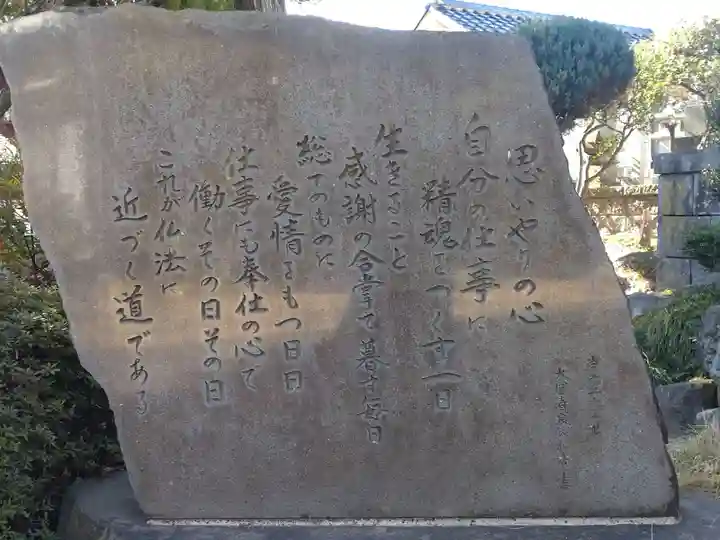 思いやりの心
自分の仕事に
精魂をつくす一日
生きること
感謝の合掌で暮す毎日
総てのものに
愛情をもつ日日
仕事にも奉仕の心で
働くその日その日
これが仏法に
近づく道である